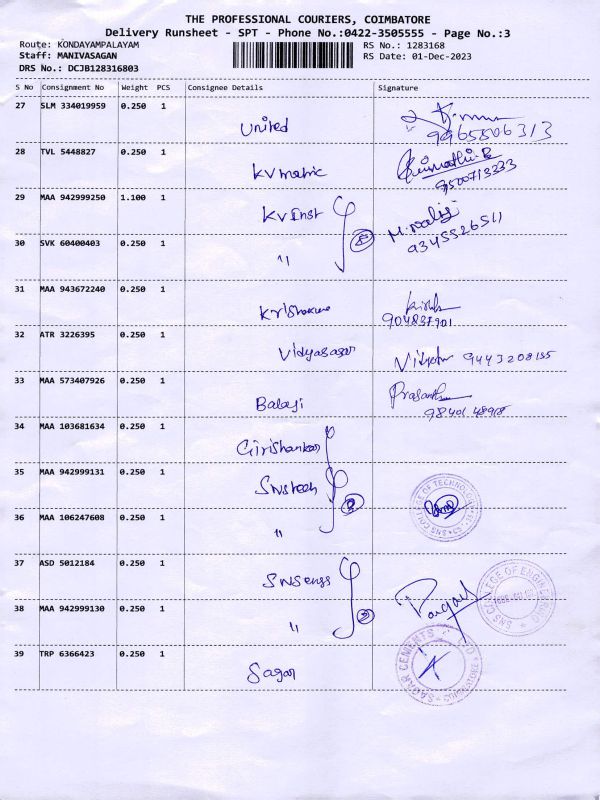 THE PROFESSIONAL COURIERS, COIMBATORE
Delivery Runsheet - SPT - Phone No.:0422-3505555 - Page No.:3
Route: KONDAYAMPALAYAM
RS No.: 1283168
Staff: MANIVASAGAN
RS Date: 01-Dec-2023
DRS No.: DCJB128316803
S No Consignment No Weight PCS Consignee Details Signature
27 SLM 334019959 0.250 1 United
9965506313
28 TVL 5448827 0.250 1 KV matric
9500713333
29 MAA 942999250 1.100 1 KV Inst
9345526511
30 SVK 60400403 0.250 1 "
31 MAA 943672240 0.250 1
904837901
32 ATR 3226395 0.250 1 Vidyasagar 9443208155
33 MAA 573407926 0.250 1 Balaji Prasanth
34 MAA 103681634 0.250 1 Girishankar
35 MAA 942999131 0.250 1 SNS tech
SNS COLLEGE OF TECHNOLOGY
36 MAA 106247608 0.250 1 "
37 ASD 5012184 0.250 1 SNS engg
SNS COLLEGE OF ENGINEERING
38 MAA 942999130 0.250 1 "
39 TRP 6366423 0.250 1 Sagar
SAGAR CEMENTS